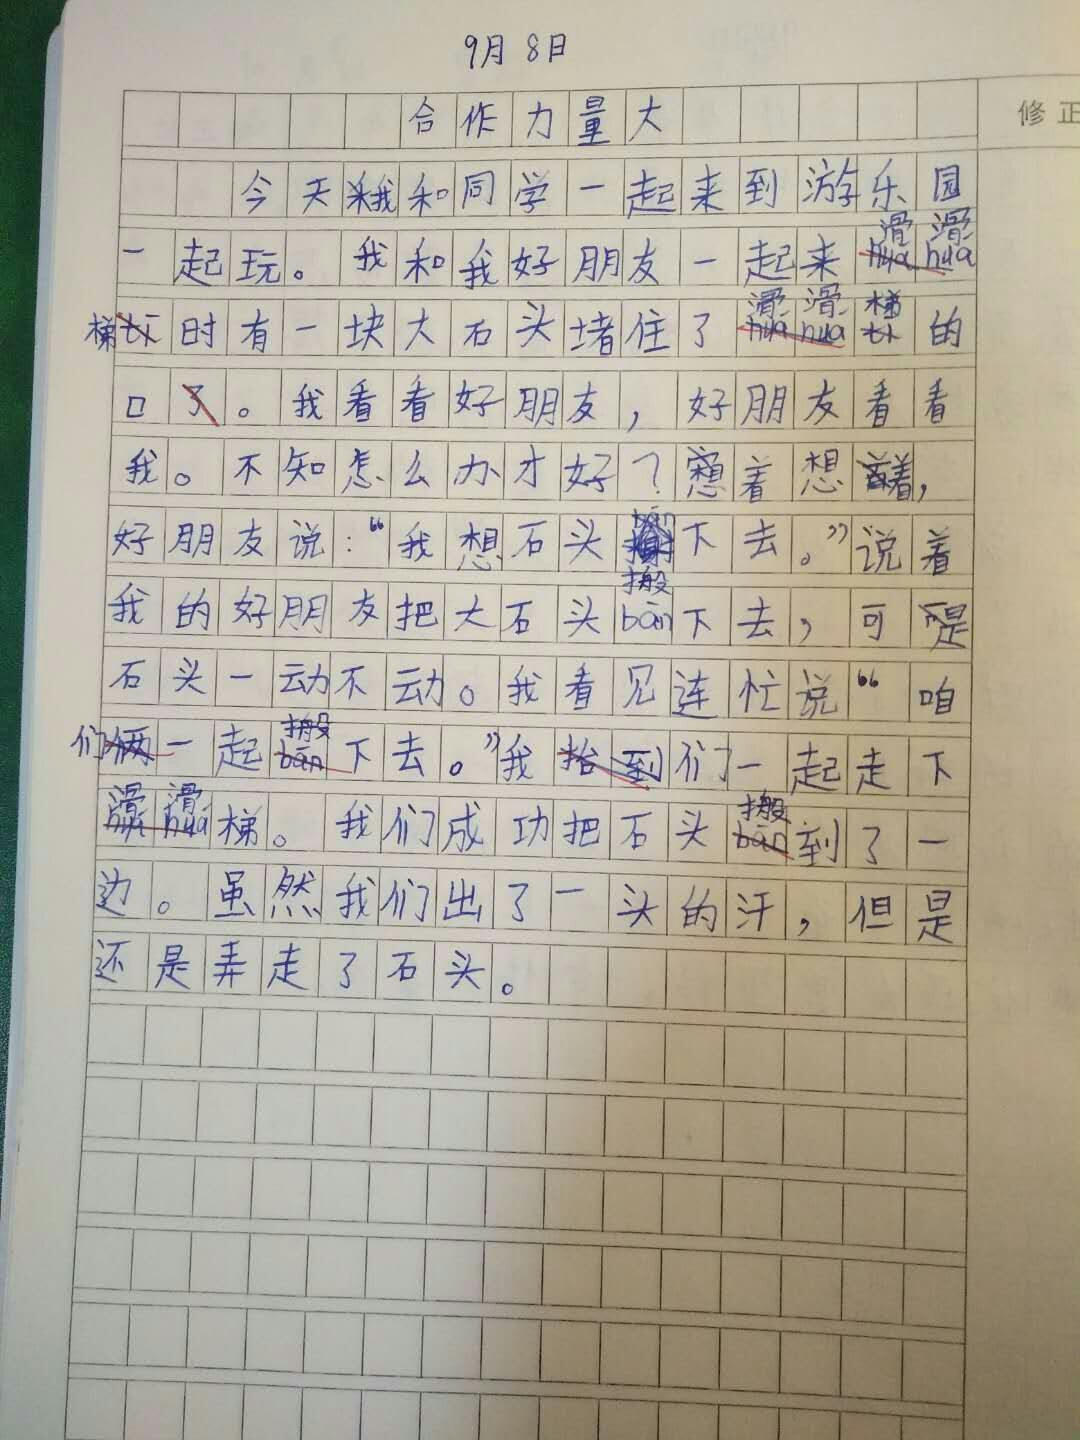 9月8日
合作力量大
修正
今天我和同学一起来到游乐园
一起玩。我和我好朋友一起来滑滑
梯时有一块大石头堵住了滑滑梯的
口了。我看看好朋友，好朋友看看
我。不知怎么办才好？想着想着，
好朋友说：“我想石头搬下去。”说着
我的好朋友把大石头搬下去，可是
石头一动不动。我看见连忙说“咱
们俩一起搬下去。”我抬到们一起走下
滑滑梯。我们成功把石头搬到了一
边。虽然我们出了一头的汗，但是
还是弄走了石头。